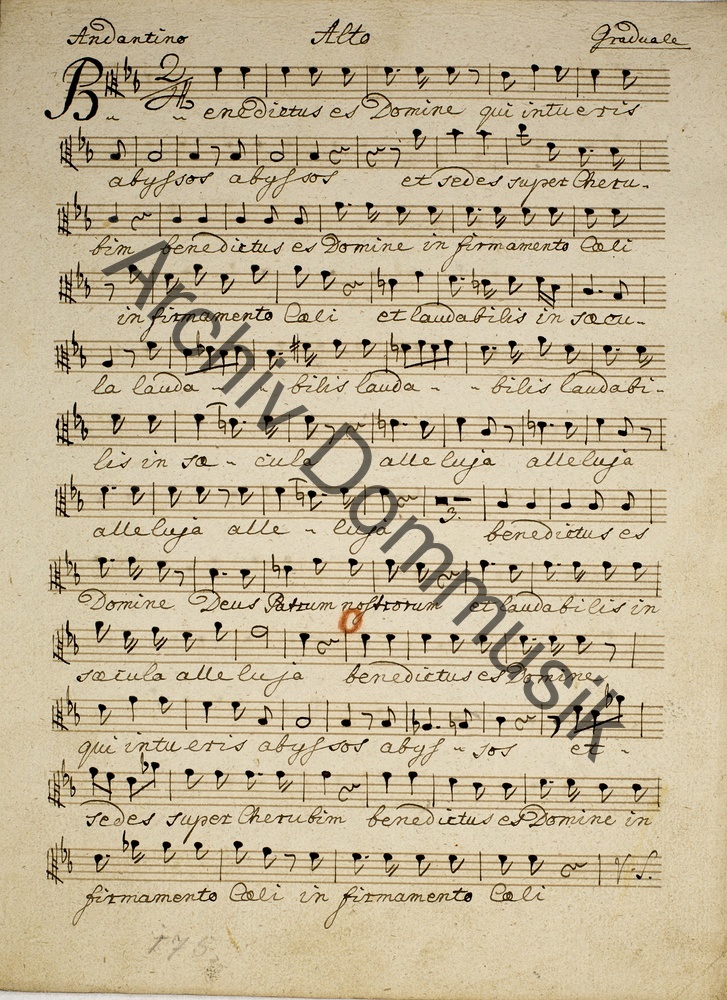 Andantino Alto Graduale
Benedictus es Domine qui intueris
abyssos abyssos et sedes super Cheru-
bim benedictus es Domine in firmamento Cœli
in firmamento Cœli et laudabilis in sæcu-
la lauda - - bilis lauda - - bilis laudabi-
lis in sæ - cula alleluja alleluja
alleluja alle - luja 3. benedictus es
Domine Deus Patrum nostrorum et laudabilis in
sæcula alleluja benedictus es Domine
qui intueris abyssos abys - sos et -
sedes super Cherubim benedictus es Domine in
firmamento Cœli in firmamento Cœli
V. S.
175
Archiv Dommusik